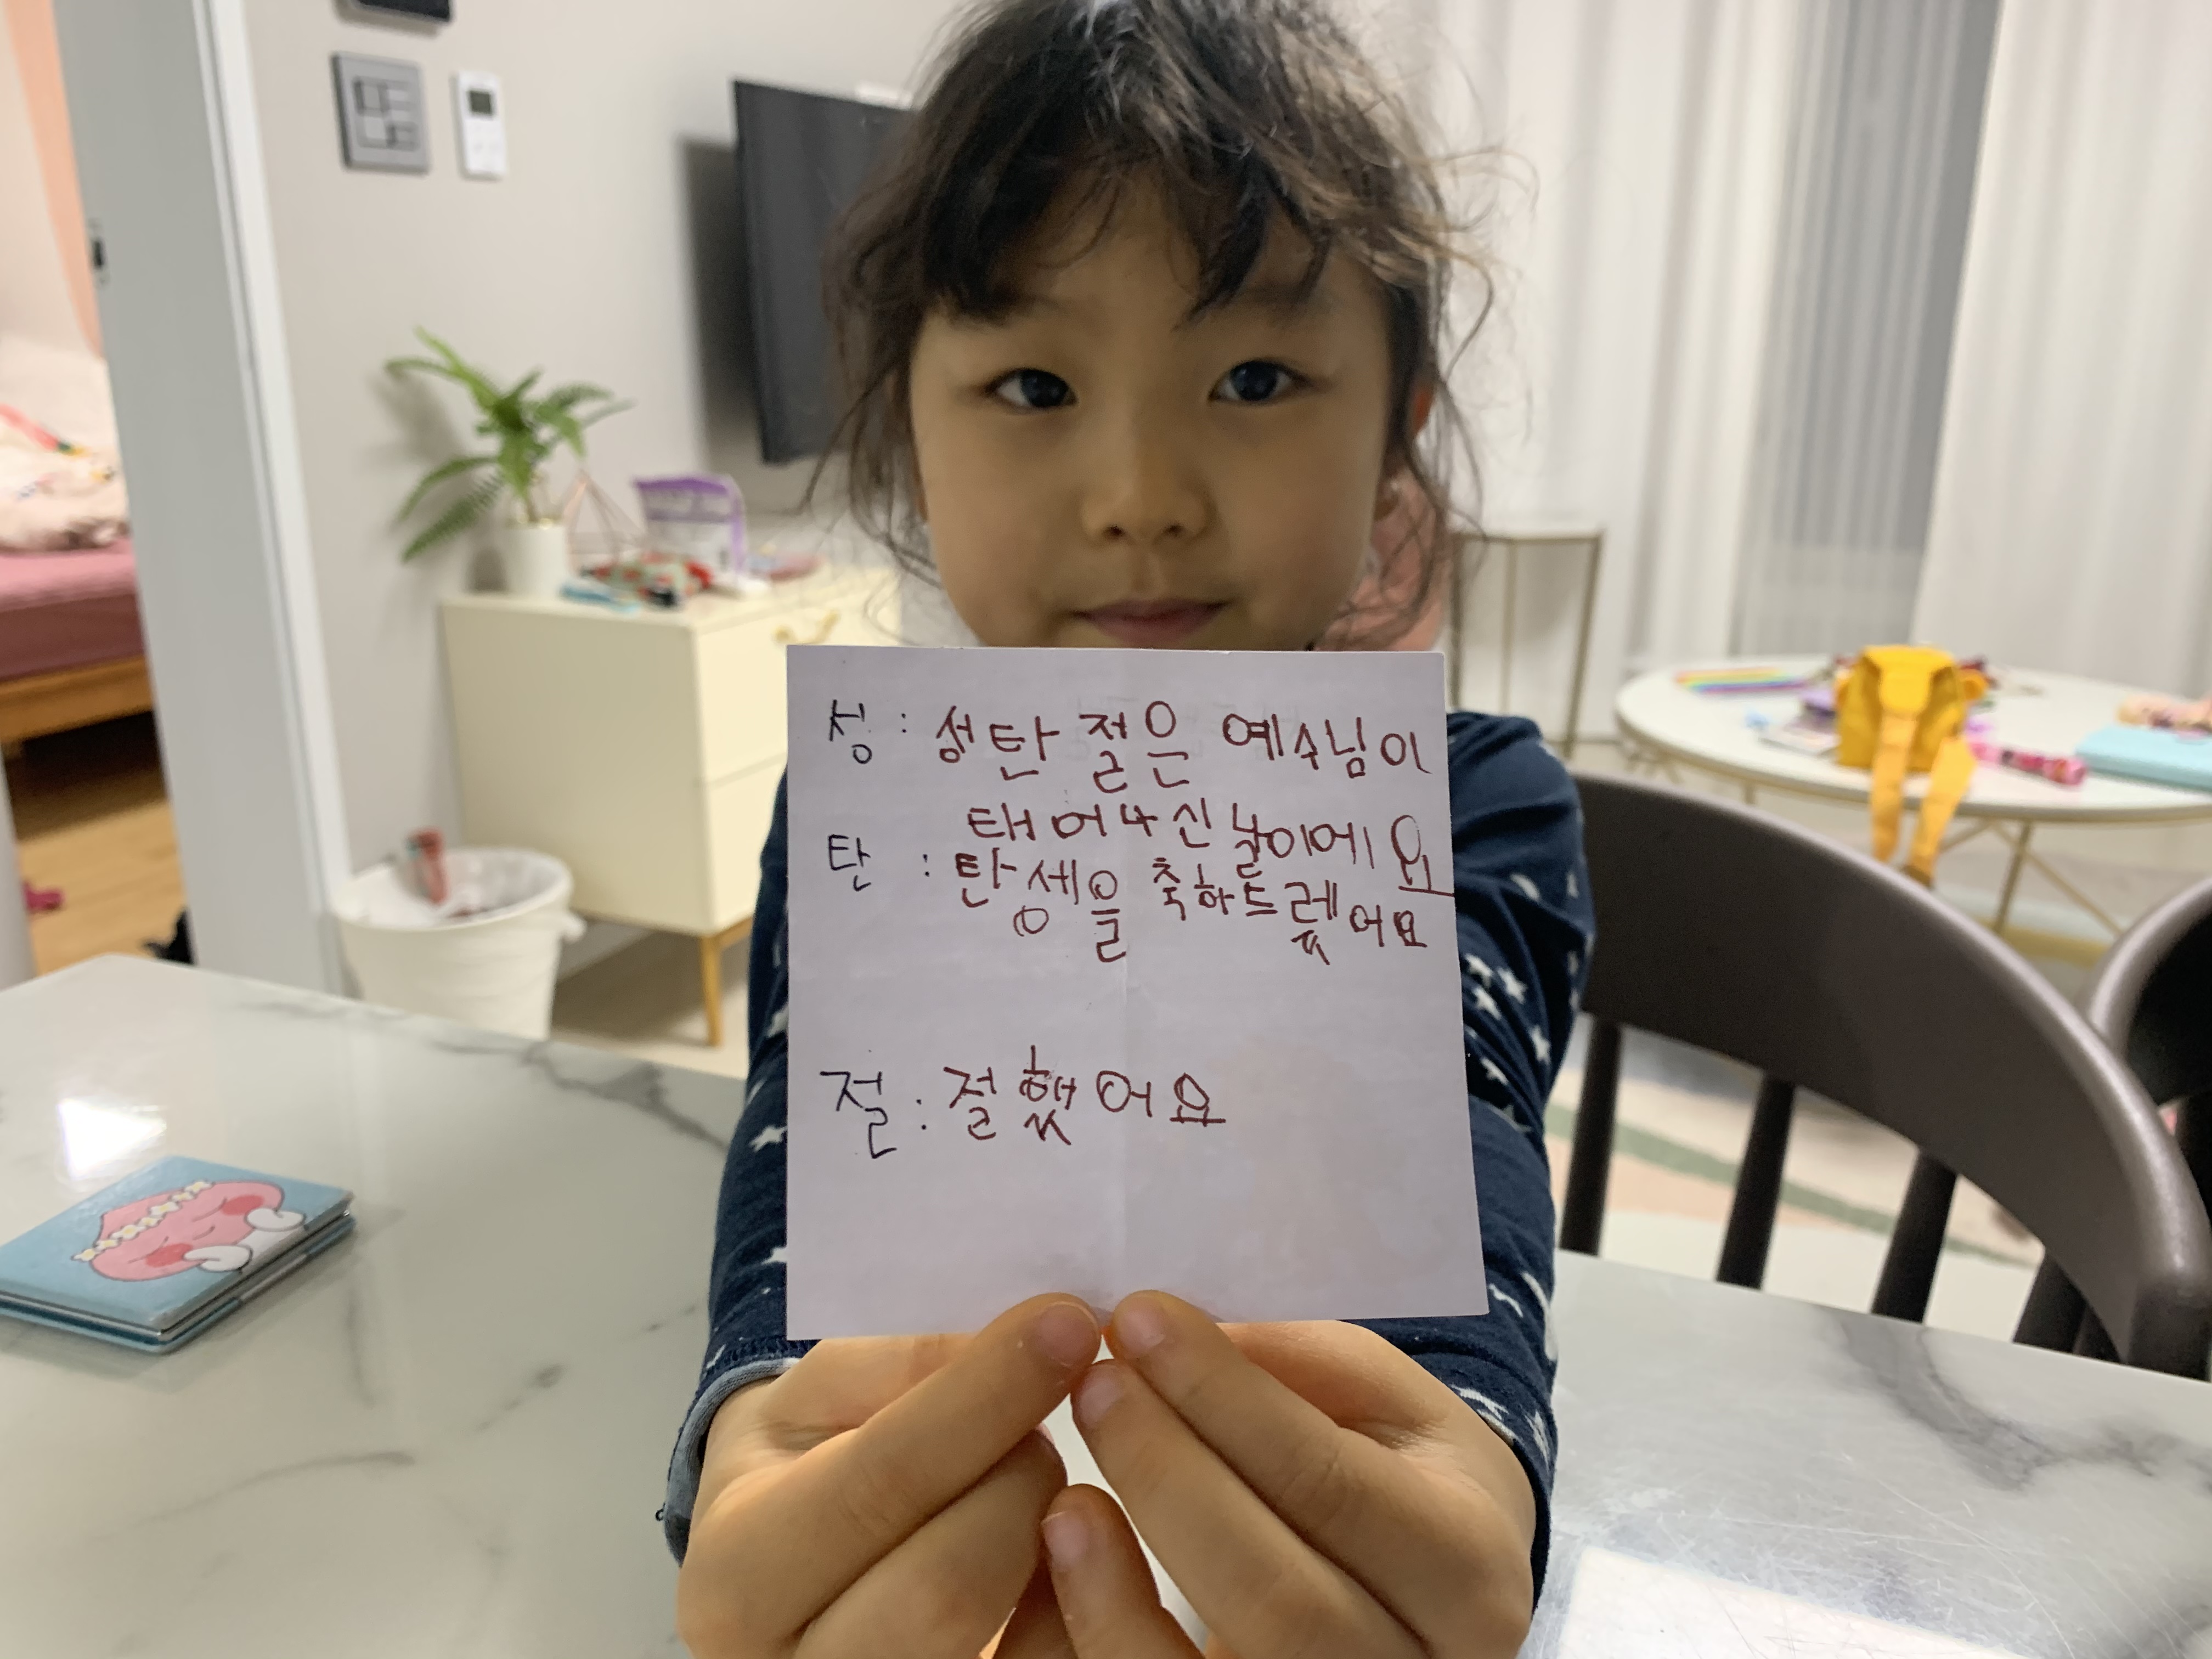 성 : 성탄절은 예수님이
태어나신 날이에요
탄 : 탄생을 축하드렸어요
절 : 절했어요